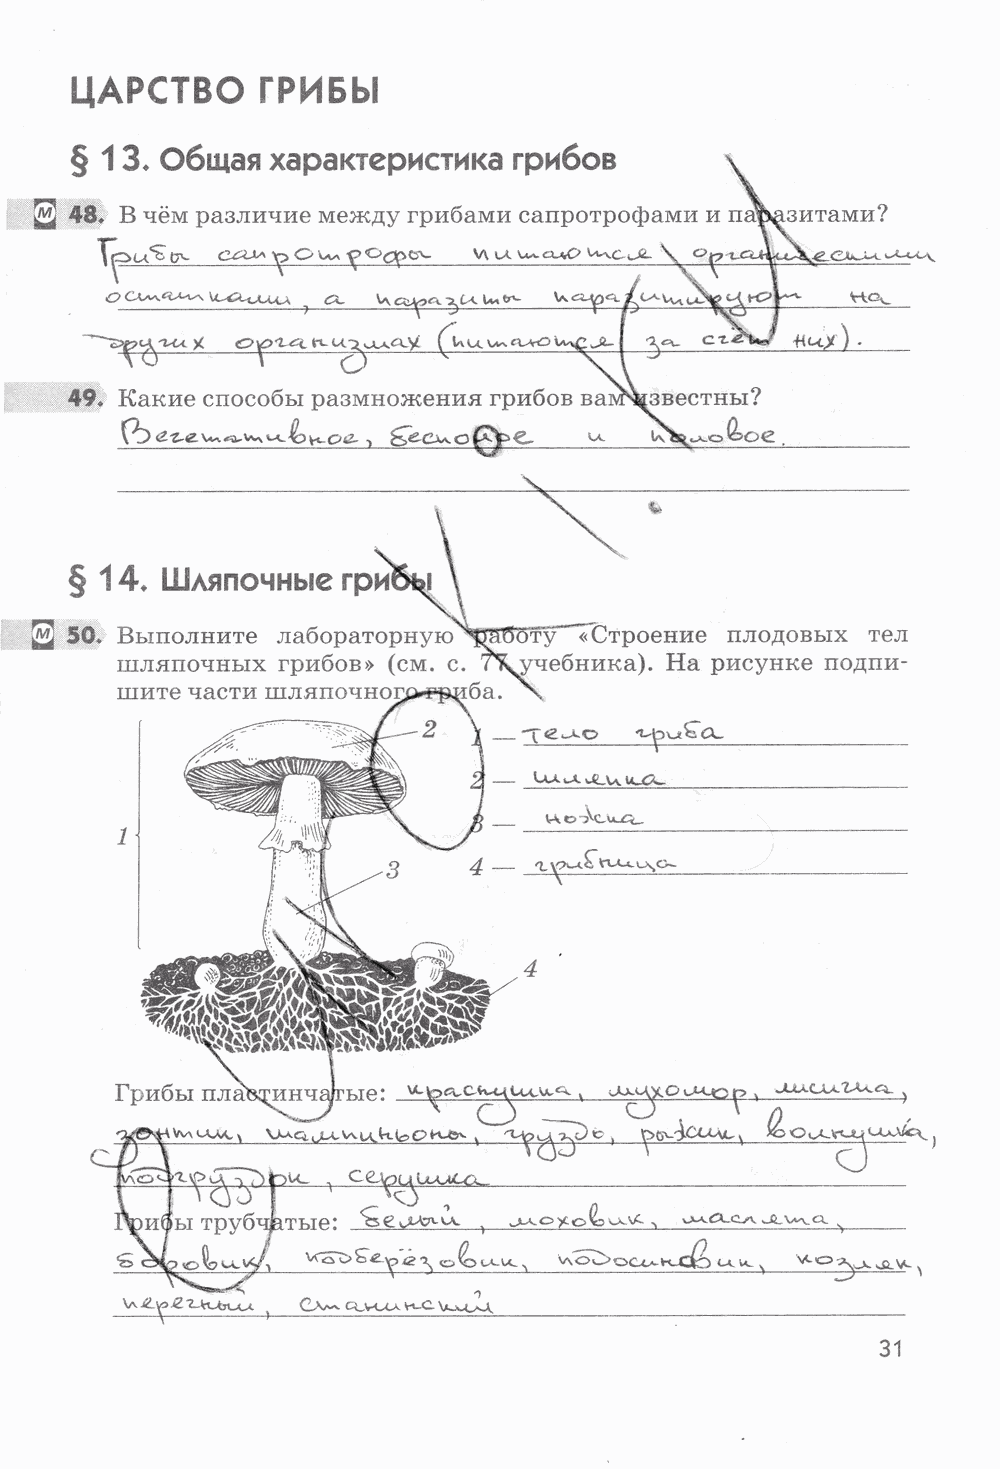 ЦАРСТВО ГРИБЫ
§ 13. Общая характеристика грибов
М 48. В чём различие между грибами сапротрофами и паразитами?
Грибы сапротрофы питаются органическими
остатками, а паразиты паразитируют на
других организмах (питаются за счёт них).
49. Какие способы размножения грибов вам известны?
Вегетативное, бесполое и половое.
§ 14. Шляпочные грибы
М 50. Выполните лабораторную работу «Строение плодовых тел
шляпочных грибов» (см. с. 77 учебника). На рисунке подпи-
шите части шляпочного гриба.
2
1 — тело гриба
2 — шляпка
1
3 — ножка
3
4 — грибница
4
Грибы пластинчатые: краснушка, мухомор, лисичка,
зонтик, шампиньоны, груздь, рыжик, волнушка,
подгруздок, серушка
Грибы трубчатые: белый, моховик, маслята,
боровик, подберёзовик, подосиновик, козляк,
перечный,
31